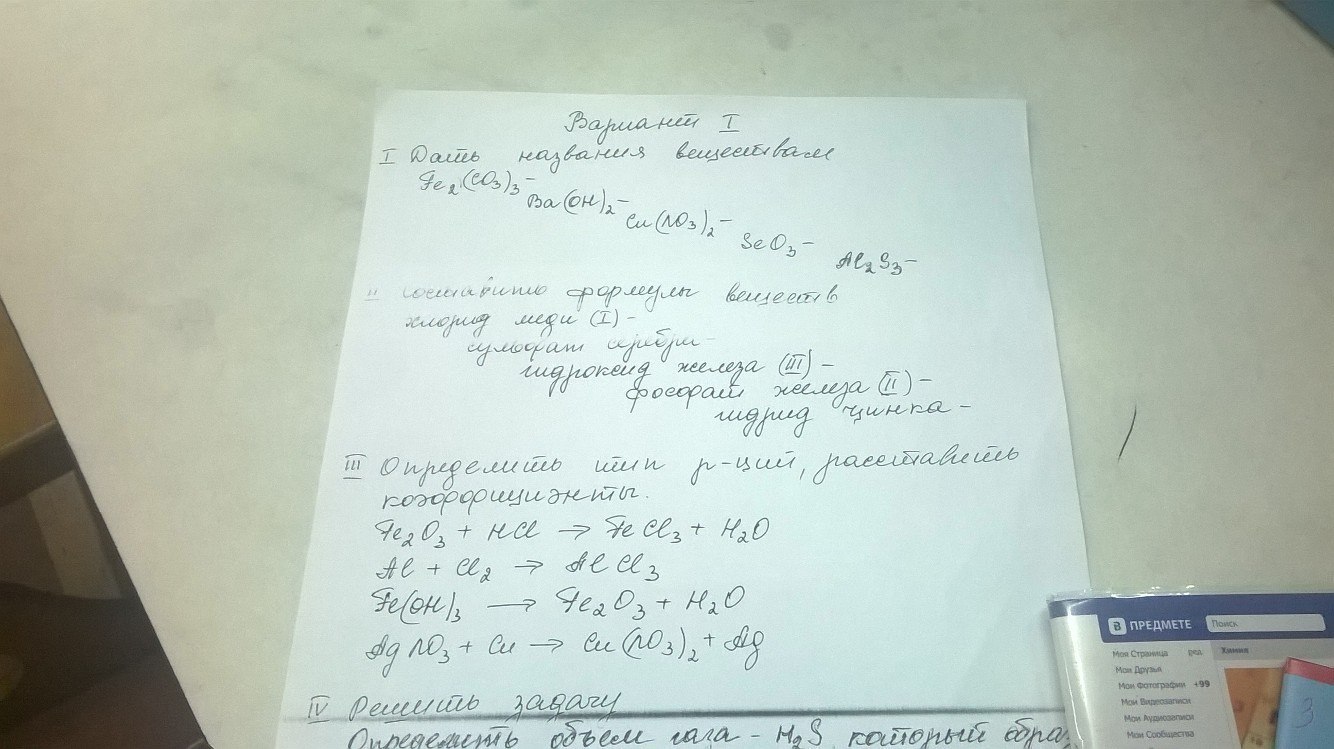 Вариант I
I Дать названия веществам
Fe₂(CO₃)₃ –
Ba(OH)₂ –
Cu(NO₃)₂ –
SeO₃ –
Al₂S₃ –
II составить формулы веществ
хлорид меди (I) –
сульфат серебра –
гидроксид железа (III) –
фосфат железа (II) –
гидрид цинка –
III Определить тип р-ций, расставить
коэффициэнты.
Fe₂O₃ + HCl → FeCl₃ + H₂O
Al + Cl₂ → AlCl₃
Fe(OH)₃ → Fe₂O₃ + H₂O
AgNO₃ + Cu → Cu(NO₃)₂ + Ag
IV Решить задачу
Определить объем газа – H₂S, который обра
В ПРЕДМЕТЕ Поиск
Моя Страница ред. Химия
Мои Друзья
Мои Фотографии +99
Мои Видеозаписи
Мои Аудиозаписи
Мои Сообщества
3